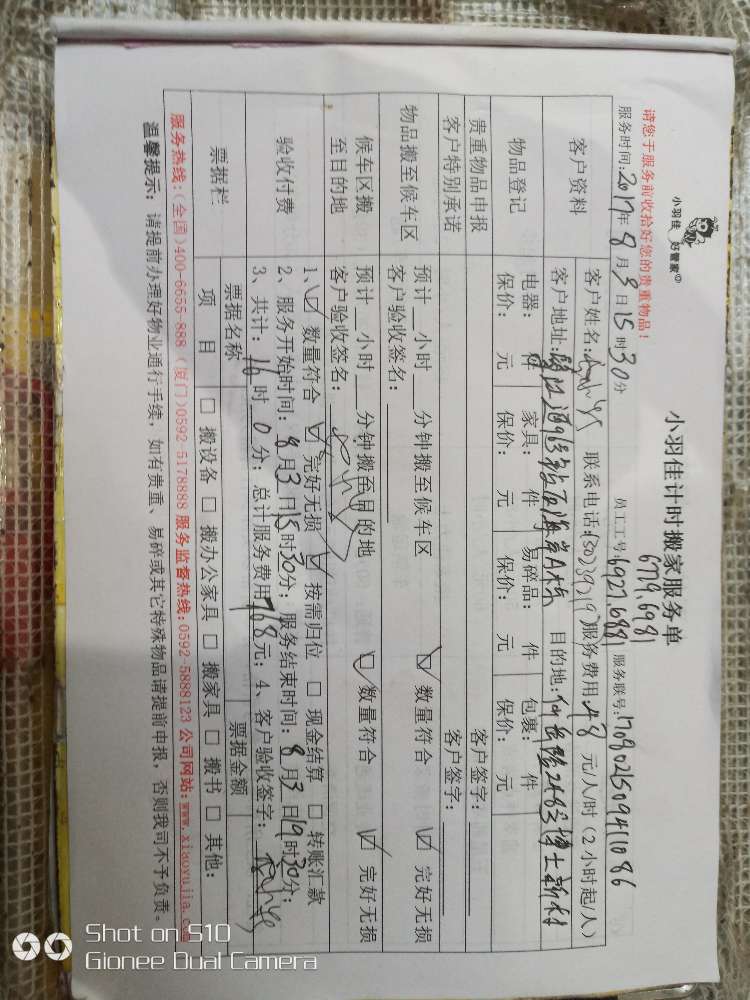 小羽佳 好管家
小羽佳计时搬家服务单
请您于服务前收拾好您的贵重物品!
6779,6981
服务时间:2017年8月3日15时30分 员工工号:6927,6881 服务联号:170802150941086
客户资料
客户姓名: 联系电话: 服务费用48元/人/时(2小时起/人)
客户地址: A栋 目的地:
物品登记
电器: 件 家具: 件 易碎品: 件 包裹: 件
保价: 元 保价: 元 保价: 元 保价: 元
贵重物品申报 客户签字:
客户特别承诺 客户签字:
物品搬至候车区
预计__小时__分钟搬至候车区 ☑ 数量符合 ☑ 完好无损
客户验收签名:
候车区搬至目的地
预计__小时__分钟搬至目的地 ☑ 数量符合 ☑ 完好无损
客户验收签名:
验收付费
1、☑ 数量符合 ☑ 完好无损 ☑ 按需归位 □ 现金结算 □ 转账汇款
2、服务开始时间:8月3日15时30分;服务结束时间:8月3日19时30分;
3、共计:16时0分;总计服务费用768元;4、客户验收签字:
票据栏
票据名称 票据金额
项 目 □ 搬设备 □ 搬办公家具 □ 搬家具 □ 搬书 □ 其他:
服务热线:(全国)400-6655-888 (厦门)0592-5178888 服务监督热线:0592-5888123 公司网站:www.xiaoyujia.com
温馨提示: 请提前办理好物业通行手续,如有贵重、易碎或其它特殊物品请提前申报,否则我司不予负责。
Shot on S10
Gionee Dual Camera